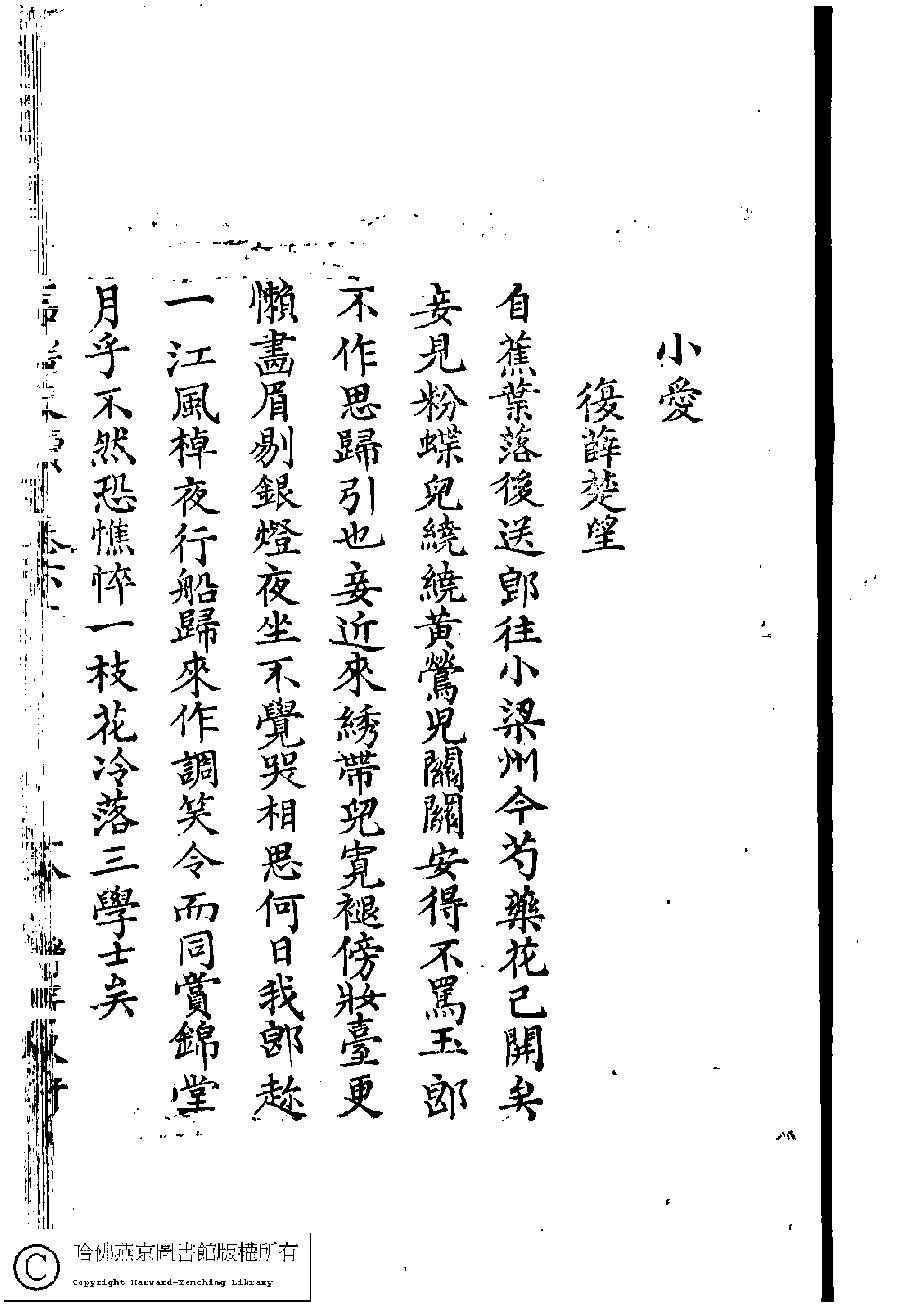 小愛
復薛楚望
自蕉葉落後送郎往小梁州今芍藥花已開矣
妾見粉蝶兒繞繞黃鶯兒關關安得不罵玉郎
不作思歸引也妾近來綉帶兒寬褪傍妝臺更
懶畵眉剔銀燈夜坐不覺哭相思何日我郎趂
一江風棹夜行船歸來作調笑令而同賞錦堂
月乎不然恐憔悴一枝花冷落三學士矣
哈佛燕京圖書館版權所有
Copyright Harvard-Yenching Library